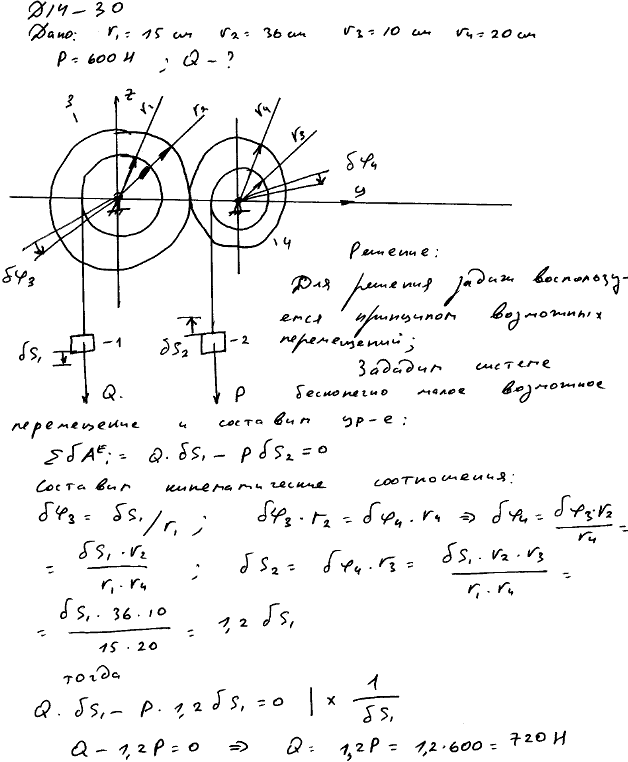 Д14-30
Дано: r₁ = 15 см r₂ = 36 см r₃ = 10 см r₄ = 20 см
P = 600 Н ; Q - ?
3
z
r₁
r₂
r₄
r₃
δφ₄
y
4
δφ₃
Решение:
Для решения задачи воспользу-
емся принципом возможных
перемещений;
δS₁
-1
δS₂
-2
Зададим системе
Q.
P
бесконечно малое возможное
перемещение и составим ур-е:
ΣδAᴱᵢ = Q·δS₁ - PδS₂ = 0
Составим кинематические соотношения:
δφ₃ = δS₁/r₁ ; δφ₃·r₂ = δφ₄·r₄ ⇒ δφ₄ = δφ₃·r₂/r₄ =
= δS₁·r₂/r₁·r₄ ; δS₂ = δφ₄·r₃ = δS₁·r₂·r₃/r₁·r₄ =
= δS₁·36·10/15·20 = 1,2 δS₁
тогда
Q·δS₁ - P·1,2δS₁ = 0 | × 1/δS₁
Q - 1,2P = 0 ⇒ Q = 1,2P = 1,2·600 = 720 Н